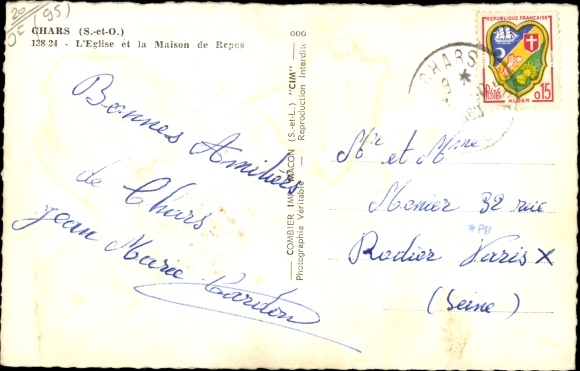 20
(95)
CHARS (S.-et-O.)
138-24 - L'Eglise et la Maison de Repos
Bonnes Amitiés
de Chars
Jean Marie
COMBIER IMP. MACON (S.-et-L.) "CIM"
Photographie Véritable - Reproduction Interdite
ooo
CHARS
REPUBLIQUE FRANÇAISE
POSTES
0,15
ALGER
Mr et Mme
Monier 32 rue
*PB
Rodier Paris X
(Seine)